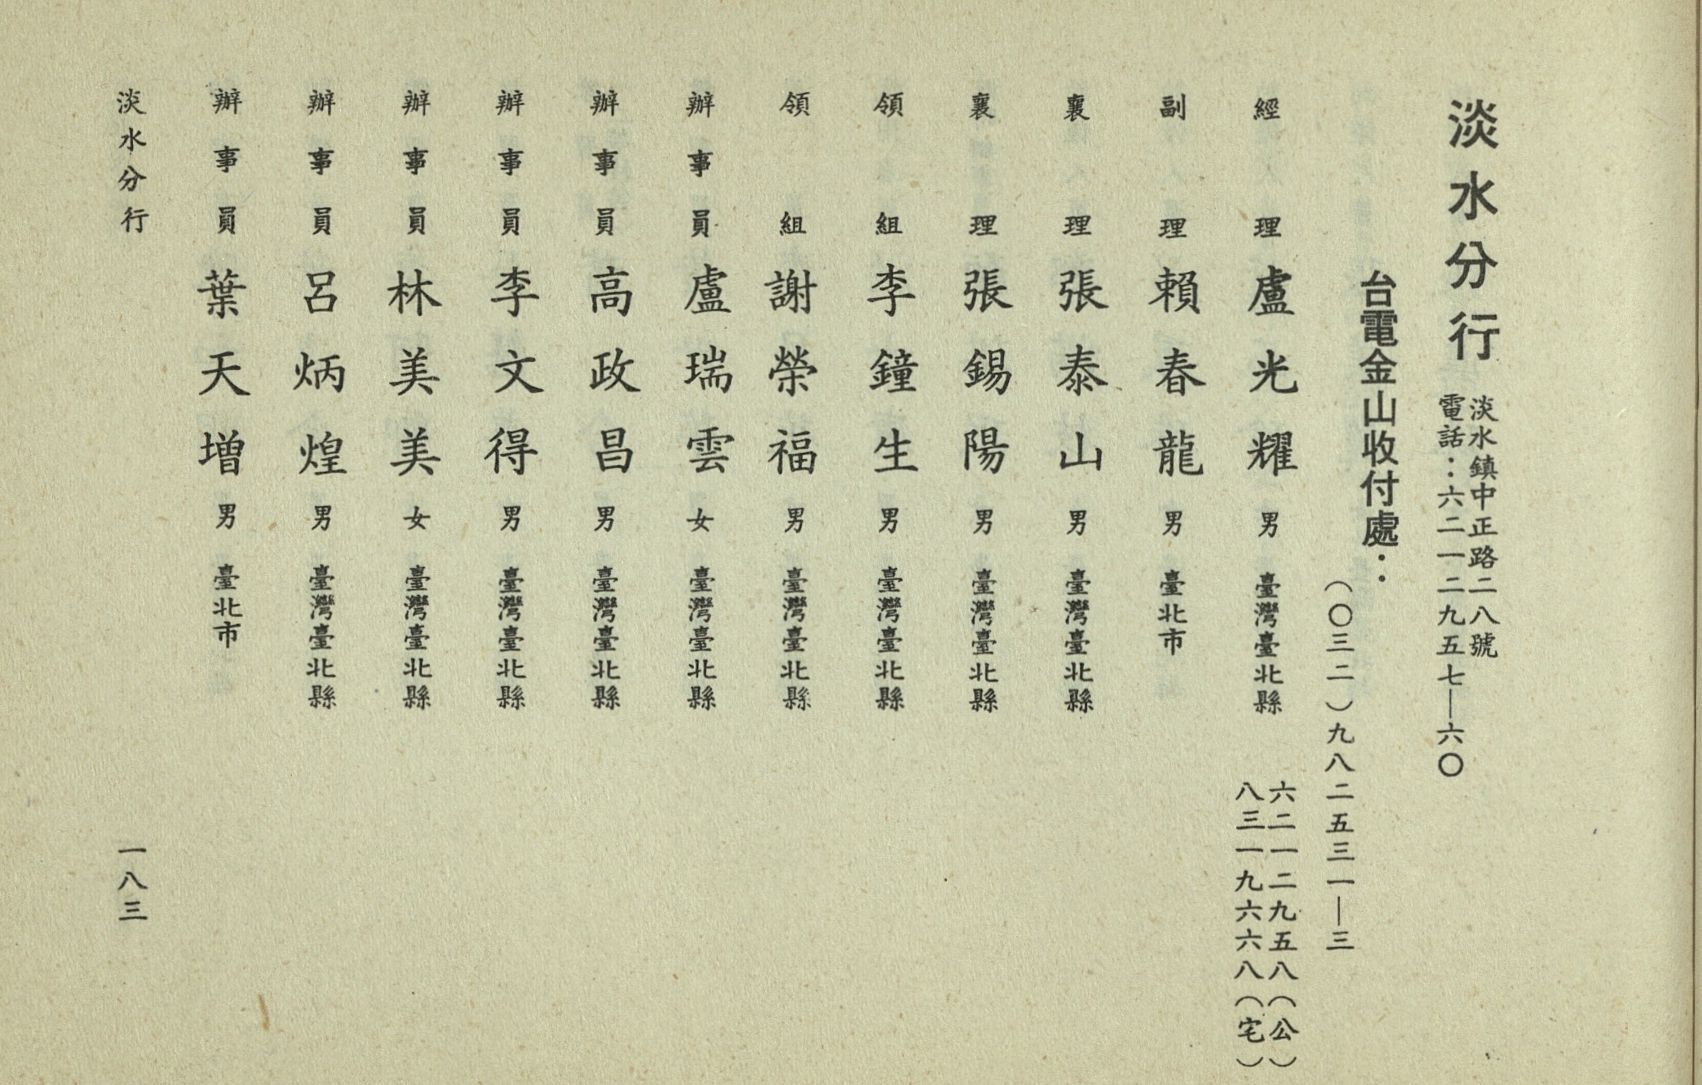 淡水分行
淡水鎮中正路二八號
電話：六二一二九五七—六〇
台電金山收付處：
（〇三二）九八二五三一—三
經理 盧光耀 男 臺灣臺北縣
六二一二九五八（公）
八三一九六六八（宅）
副理 賴春龍 男 臺北市
襄理 張泰山 男 臺灣臺北縣
襄理 張錫陽 男 臺灣臺北縣
領組 李鐘生 男 臺灣臺北縣
領組 謝榮福 男 臺灣臺北縣
辦事員 盧瑞雲 女 臺灣臺北縣
辦事員 高政昌 男 臺灣臺北縣
辦事員 李文得 男 臺灣臺北縣
辦事員 林美美 女 臺灣臺北縣
辦事員 呂炳煌 男 臺灣臺北縣
辦事員 葉天增 男 臺北市
淡水分行
一八三